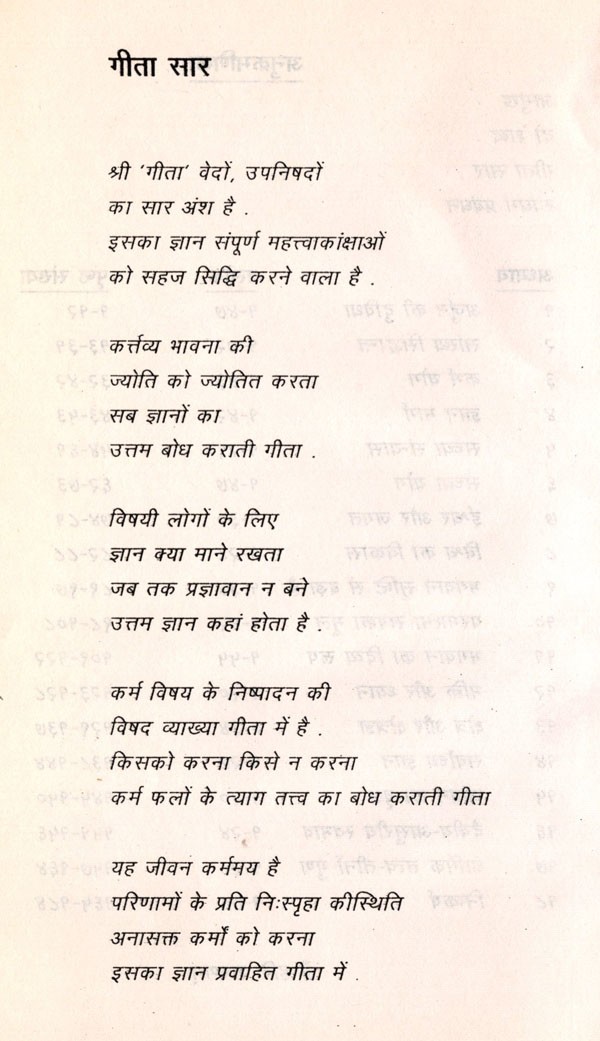 गीता सार
श्री 'गीता' वेदों, उपनिषदों
का सार अंश है .
इसका ज्ञान संपूर्ण महत्त्वाकांक्षाओं
को सहज सिद्धि करने वाला है .
कर्त्तव्य भावना की
ज्योति को ज्योतित करता
सब ज्ञानों का
उत्तम बोध कराती गीता .
विषयी लोगों के लिए
ज्ञान क्या माने रखता
जब तक प्रज्ञावान न बने
उत्तम ज्ञान कहां होता है .
कर्म विषय के निष्पादन की
विषद व्याख्या गीता में है .
किसको करना किसे न करना
कर्म फलों के त्याग तत्त्व का बोध कराती गीता
यह जीवन कर्ममय है
परिणामों के प्रति निःस्पृहा कीस्थिति
अनासक्त कर्मों को करना
इसका ज्ञान प्रवाहित गीता में .